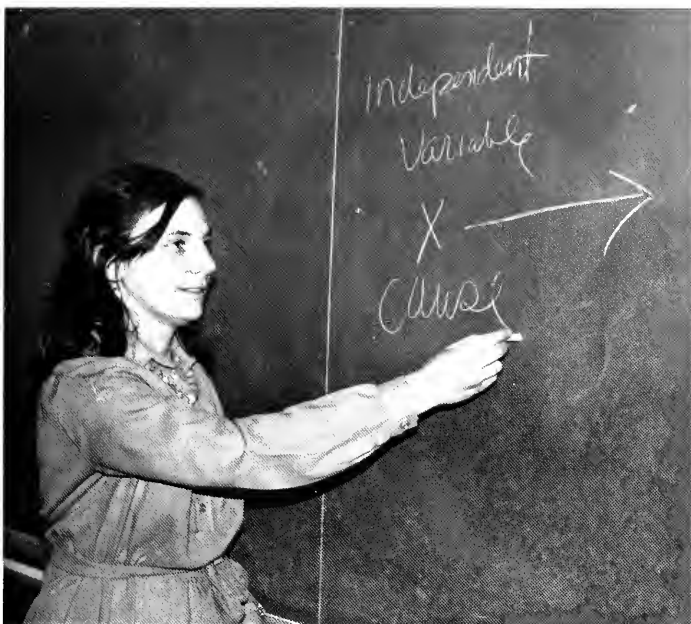 Independent
Variable
X
Cause